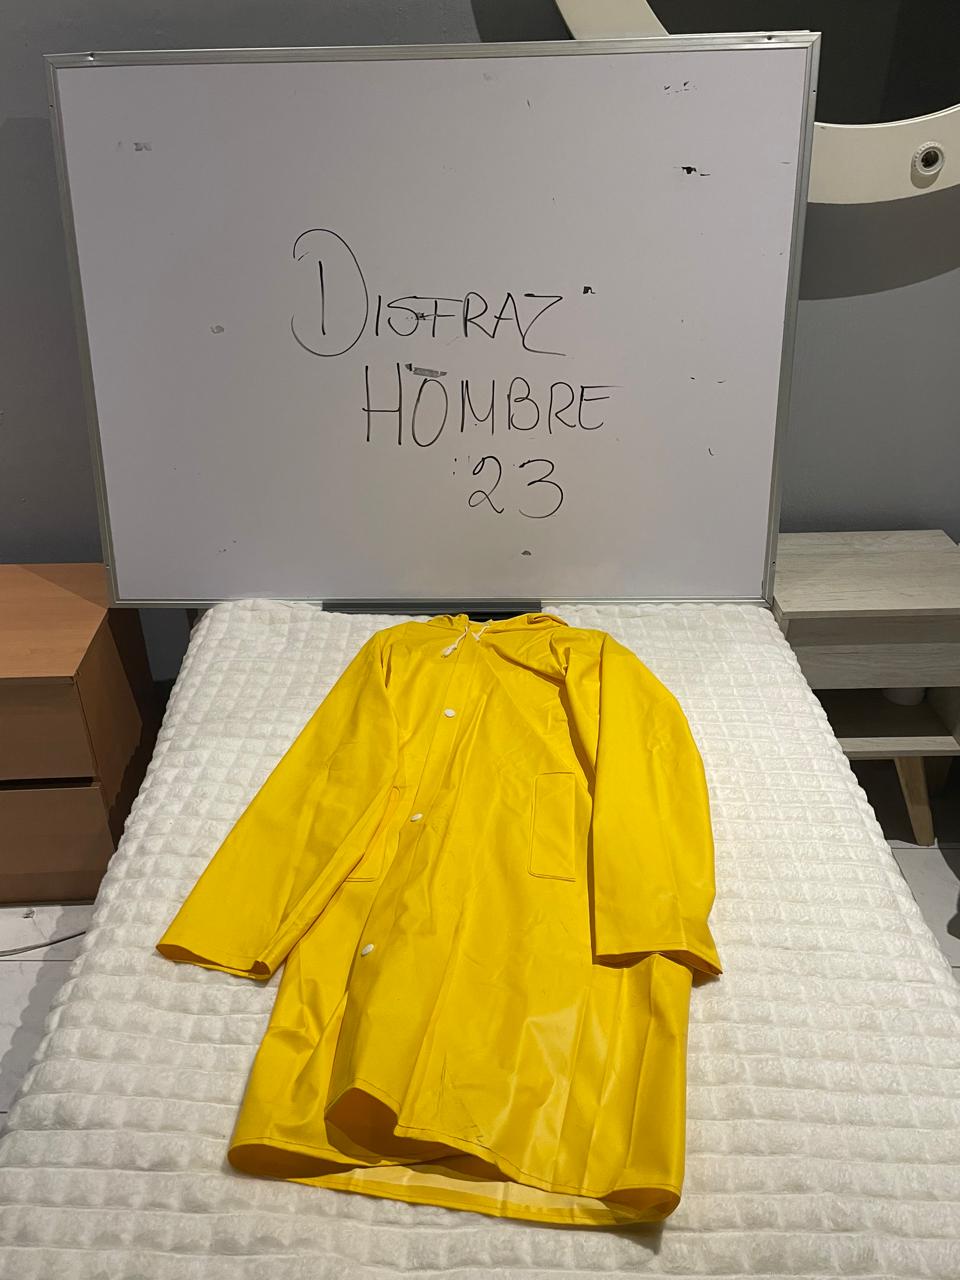 DISFRAZ
HOMBRE
23